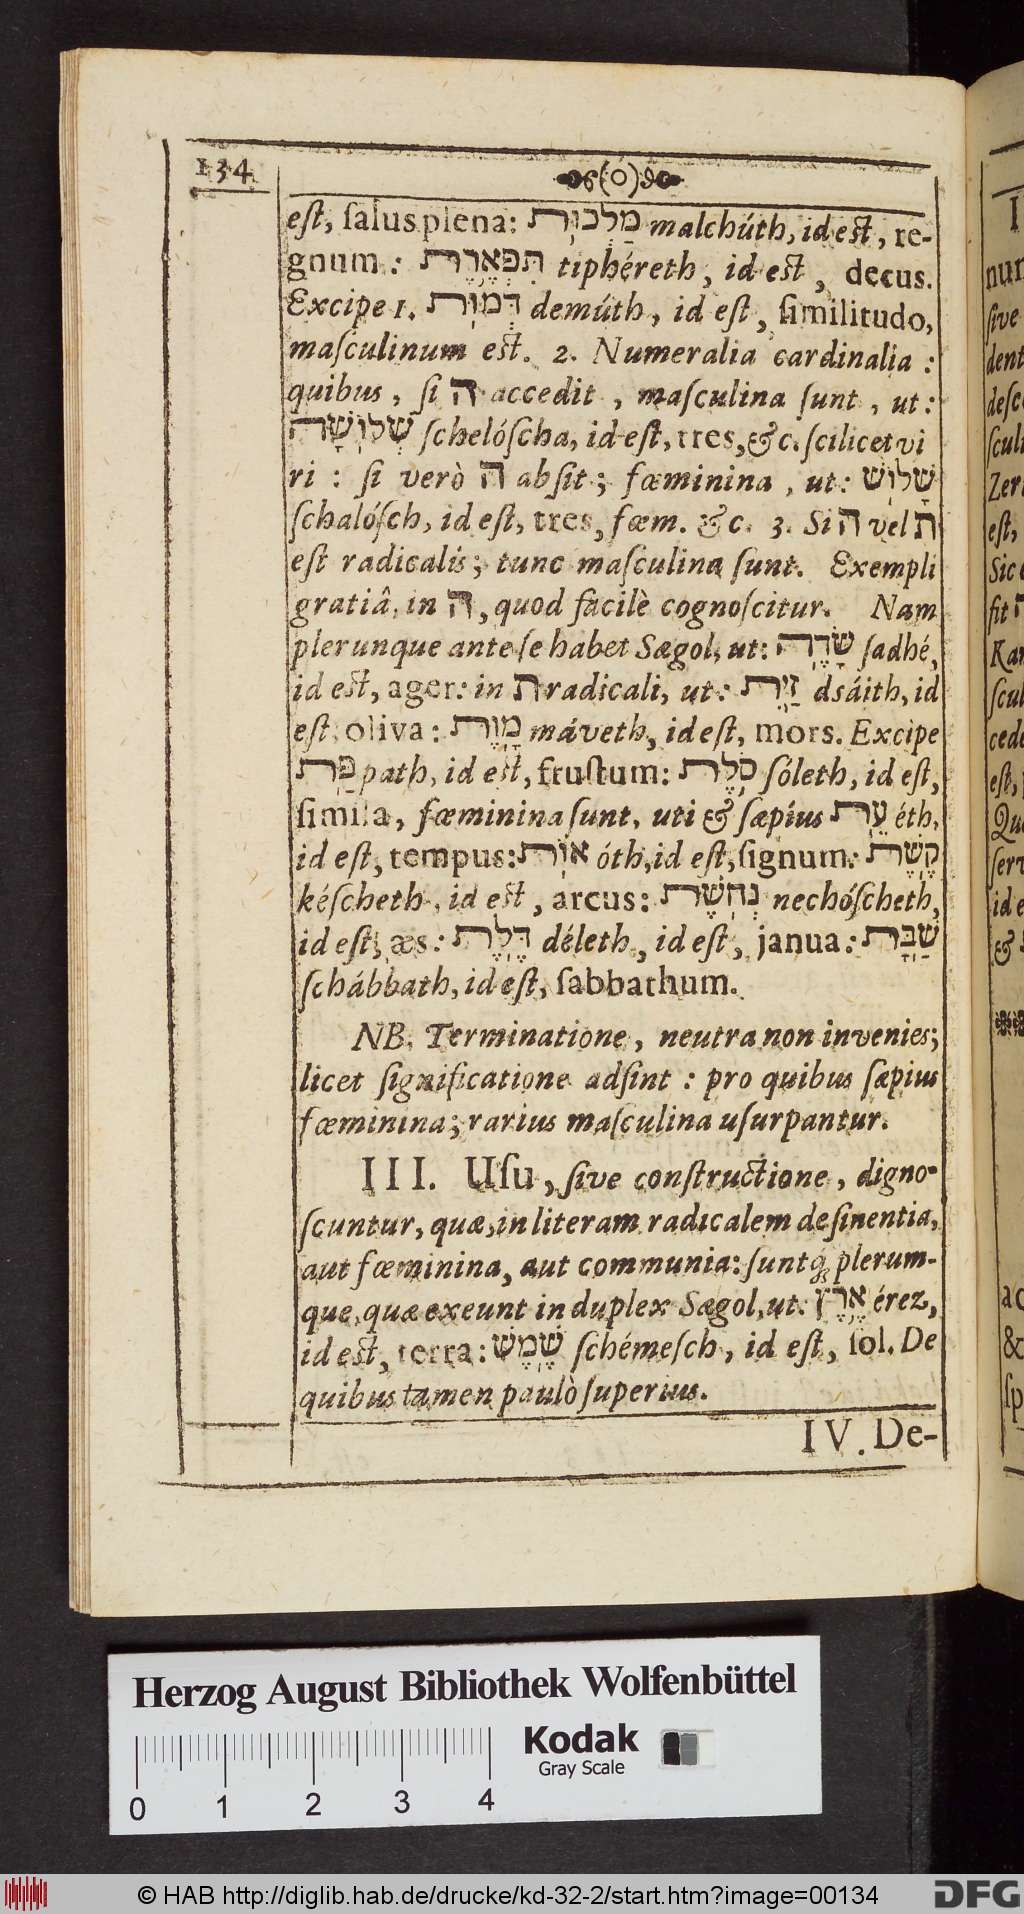 134
est, ſalus plena: מַלְכוּת malchúth, id est, re-
gnum: תִּפְאֶרֶת tiphéreth, id est, decus.
Excipe 1. דְּמוּת demúth, id eſt, ſimilitudo,
maſculinum est. 2. Numeralia cardinalia:
quibus, ſi ה accedit, maſculina ſunt, ut:
שְׁלוֹשָׁה ſchelóſcha, id eſt, tres, &c. ſcilicet vi
ri: ſi verò ה abſit; fœminina, ut: שָׁלוֹשׁ
ſchalóſch, id eſt, tres, fœm. &c. 3. Si ה vel ת
eſt radicalis; tunc maſculina ſunt. Exempli
gratiâ, in ה, quod facilè cognoſcitur. Nam
plerunque ante ſe habet Sægol, ut: שָׂדֶה ſadhé,
id est, ager: in ת radicali, ut: זַיִת dsáith, id
eſt, oliva: מָוֶת máveth, id eſt, mors. Excipe
פַּת path, id est, fruſtum: סֹלֶת sóleth, id eſt,
ſimila, fœminina ſunt, uti & ſæpiùs עֵת éth,
id eſt, tempus: אוֹת óth, id eſt, ſignum: קֶשֶׁת
kéſcheth, id est, arcus: נְחֹשֶׁת nechóſcheth,
id eſt, æs: דֶּלֶת déleth, id eſt, janua: שַׁבָּת
ſchábbath, id eſt, ſabbathum.
NB. Terminatione, neutra non invenies;
licet ſignificatione adſint: pro quibus ſæpius
fœminina; rarius maſculina uſurpantur.
III. Uſu, ſive conſtructione, digno-
ſcuntur, quæ, in literam radicalem deſinentia,
aut fœminina, aut communia: ſuntq; plerum-
que, quæ exeunt in duplex Sægol, ut: אֶרֶץ érez,
id est, terra: שֶׁמֶשׁ ſchémeſch, id eſt, ſol. De
quibus tamen paulò ſuperius.
IV. De-
I
nun
ſive
dent
deſc
ſculi
Zer
eſt,
Sic
ſit ה
Ka
ſcul
cede
eſt,
Qu
ſer
id e
&
ac
&
ſp
Herzog August Bibliothek Wolfenbüttel
Kodak
Gray Scale
0 1 2 3 4
© HAB http://diglib.hab.de/drucke/kd-32-2/start.htm?image=00134
DFG